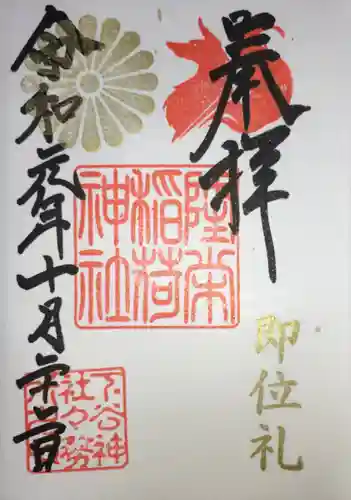 奉拝
隆栄
稲荷
神社
即位礼
令和元年十月廿二日
下谷神
社々務